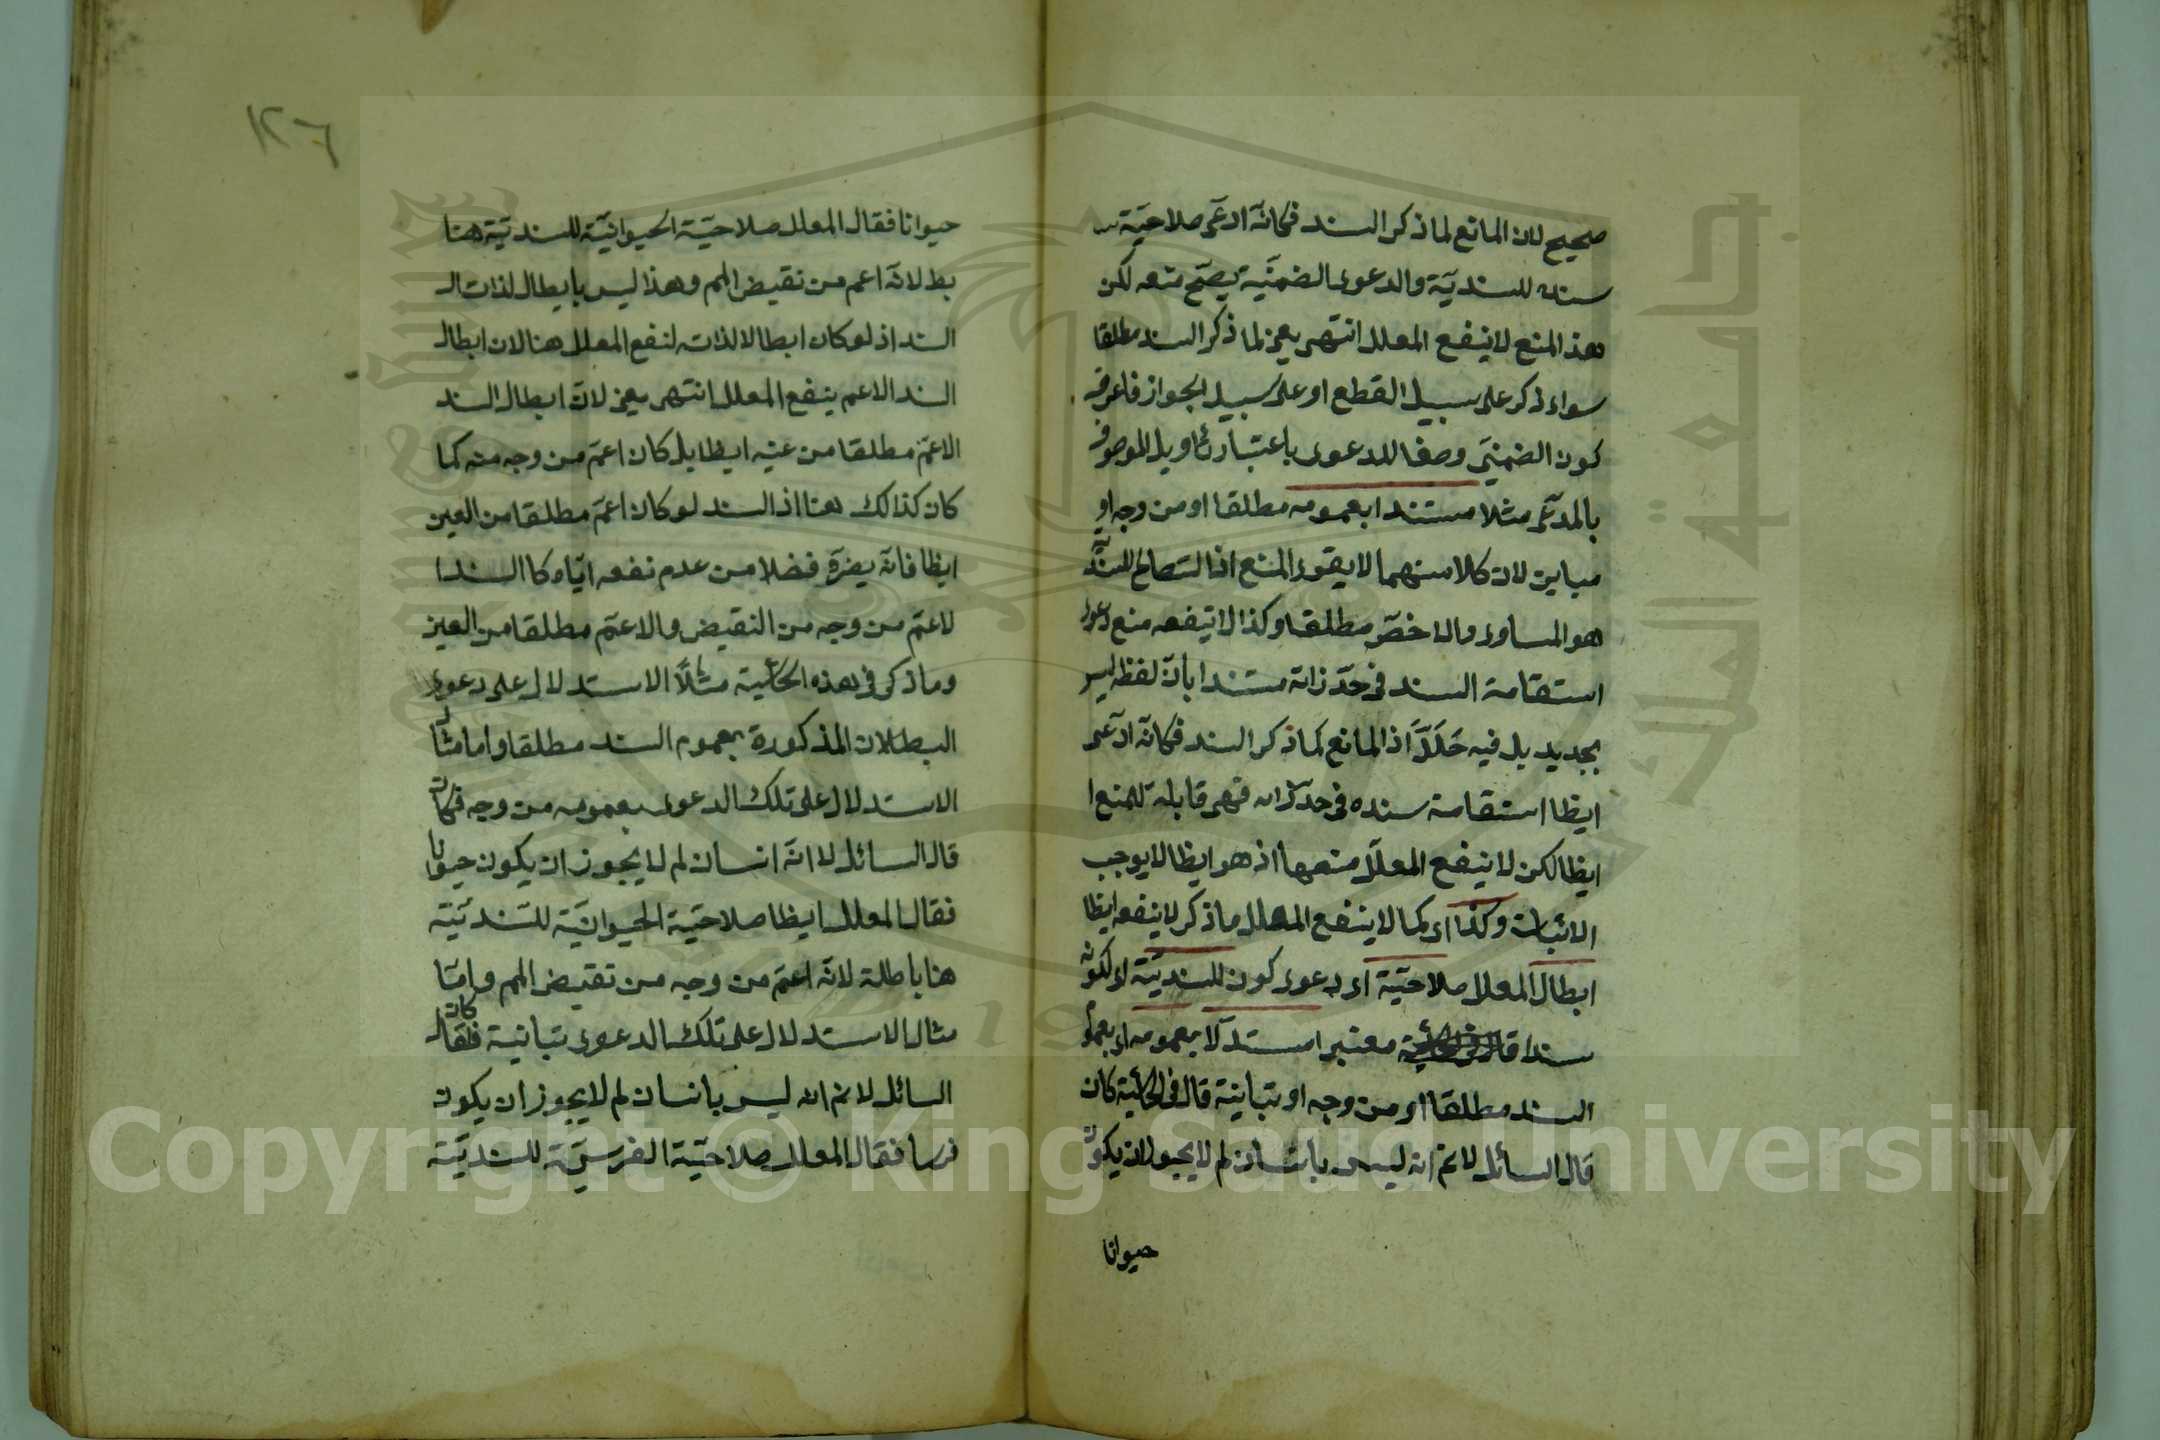 صحيح لان المانع لما ذكر السند فكانه ادعى صلاحية
سنده للسندية والدعوى الضمنية يصح منعه لكن
هذ المنع لا ينفع المعلل انتهى يعنى لما ذكر السند مطلقا
سواء ذكر على سبيل القطع او على سبيل الجواز فاعرفه
كون الضمنى وصفا للدعوى باعتبار تاويل الموصوف
بالمدعى مثلا مستندا بعمومه مطلقا او من وجه او
مباين لان كلا منهما لا يقوى المنع اذا الصالح للسند
هو المساوى والاخص مطلقا وكذا لا ينفعه منع دعوى
استقامة السند فى حد ذاته مستندا بان لفظه ليس
بجديد بل فيه خللا اذ المانع كما ذكر السند فكانه ادعى
ايظا استقامة سنده فى حد ذاته فهى قابلة للمنع ا
ايظا لكن لا ينفع المعلل منعها اذ هو ايظا لا يوجب
الاثبات وكذا اى كما لا ينفع المعلل ما ذكر لا ينفعه ايظا
ابطال المعلل صلاحية اى دعوى كون للسندية اى لكونه
سندا معتبرا مستدلا بعمومه اى بعموم
السند مطلقا او من وجه او بتباينة قال فى الحاشية كان
قال السائل لا نم انه ليس بانسان لم لا يجوز ان يكون
حيوانا
١٢٦
حيوانا فقال المعلل صلاحية الحيوانية للسندية هنا
بط لانه اعم من نقيض المم وهذ ليس بابطال لذات ال
السند اذ لو كان ابطالا لذاته لنفع المعلل هنا لان ابطال
السند الاعم ينفع المعلل انتهى يعنى لان ابطال السند
الاعم مطلقا من عينه ايظا بل كان اعم من وجه منه كما
كان كذالك هنا اذ السند لو كان اعم مطلقا من العين
ايظا فانه يضره فضلا من عدم نفعه اياه كا السند ا
لاعم من وجه من النقيض والاعم مطلقا من العين
وما ذكر فى هذه الحاشية مثلا الاستدلال على دعوى
البطلان المذكورة بعموم السند مطلقا واما مثال
الاستدلال على تلك الدعوى بعمومه من وجه فكان
قال السائل لا انه انسان لم لا يجوز ان يكون حيوانا
فقال المعلل ايظا صلاحية الحيوانية للسندية
هنا باطلة لانه اعم من وجه من نقيض المم واما
مثال الاستدلال على تلك الدعوى بتباينة فكان قال
السائل لا نم انه ليس بانسان لم لا يجوز ان يكون
فرسا فقال المعلل صلاحية الفرسية للسندية
جامعة الملك سعود
1957
Copyright © King Saud University